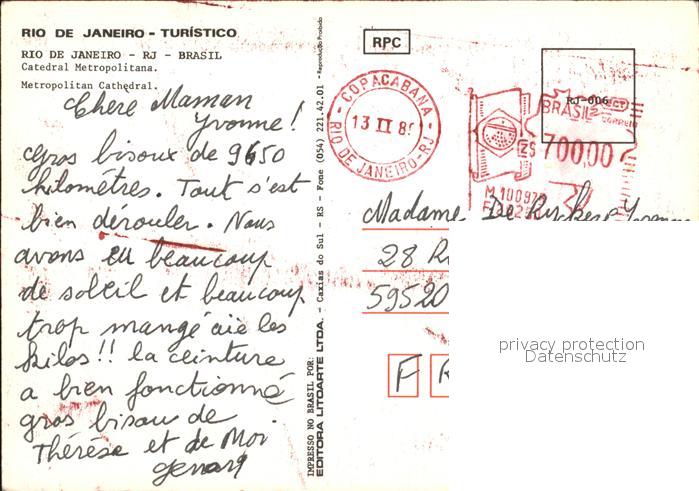 RIO DE JANEIRO - TURÍSTICO
RIO DE JANEIRO - RJ - BRASIL
Catedral Metropolitana.
Metropolitan Cathedral.
Chere Maman
Yvonne!
Gros bisoux de 9650
kilomètres. Tout s'est
bien dérouler. Nous
avons eu beaucoup
de soleil et beaucoup
trop mangé aie les
kilos!! la ceinture
a bien fonctionné
gros bisou de
Thérèse et de Moi
IMPRESSO NO BRASIL POR:
EDITORA LITOARTE LTDA. - Caxias do Sul - RS - Fone (054) 221.42.01 - Reprodução Proibida
RPC
COPACABANA
13 II 89
RIO DE JANEIRO-RJ
RJ-606
BRASIL
CORREIO
700,00
Madame De
28 R
59520
F R
privacy protection
Datenschutz